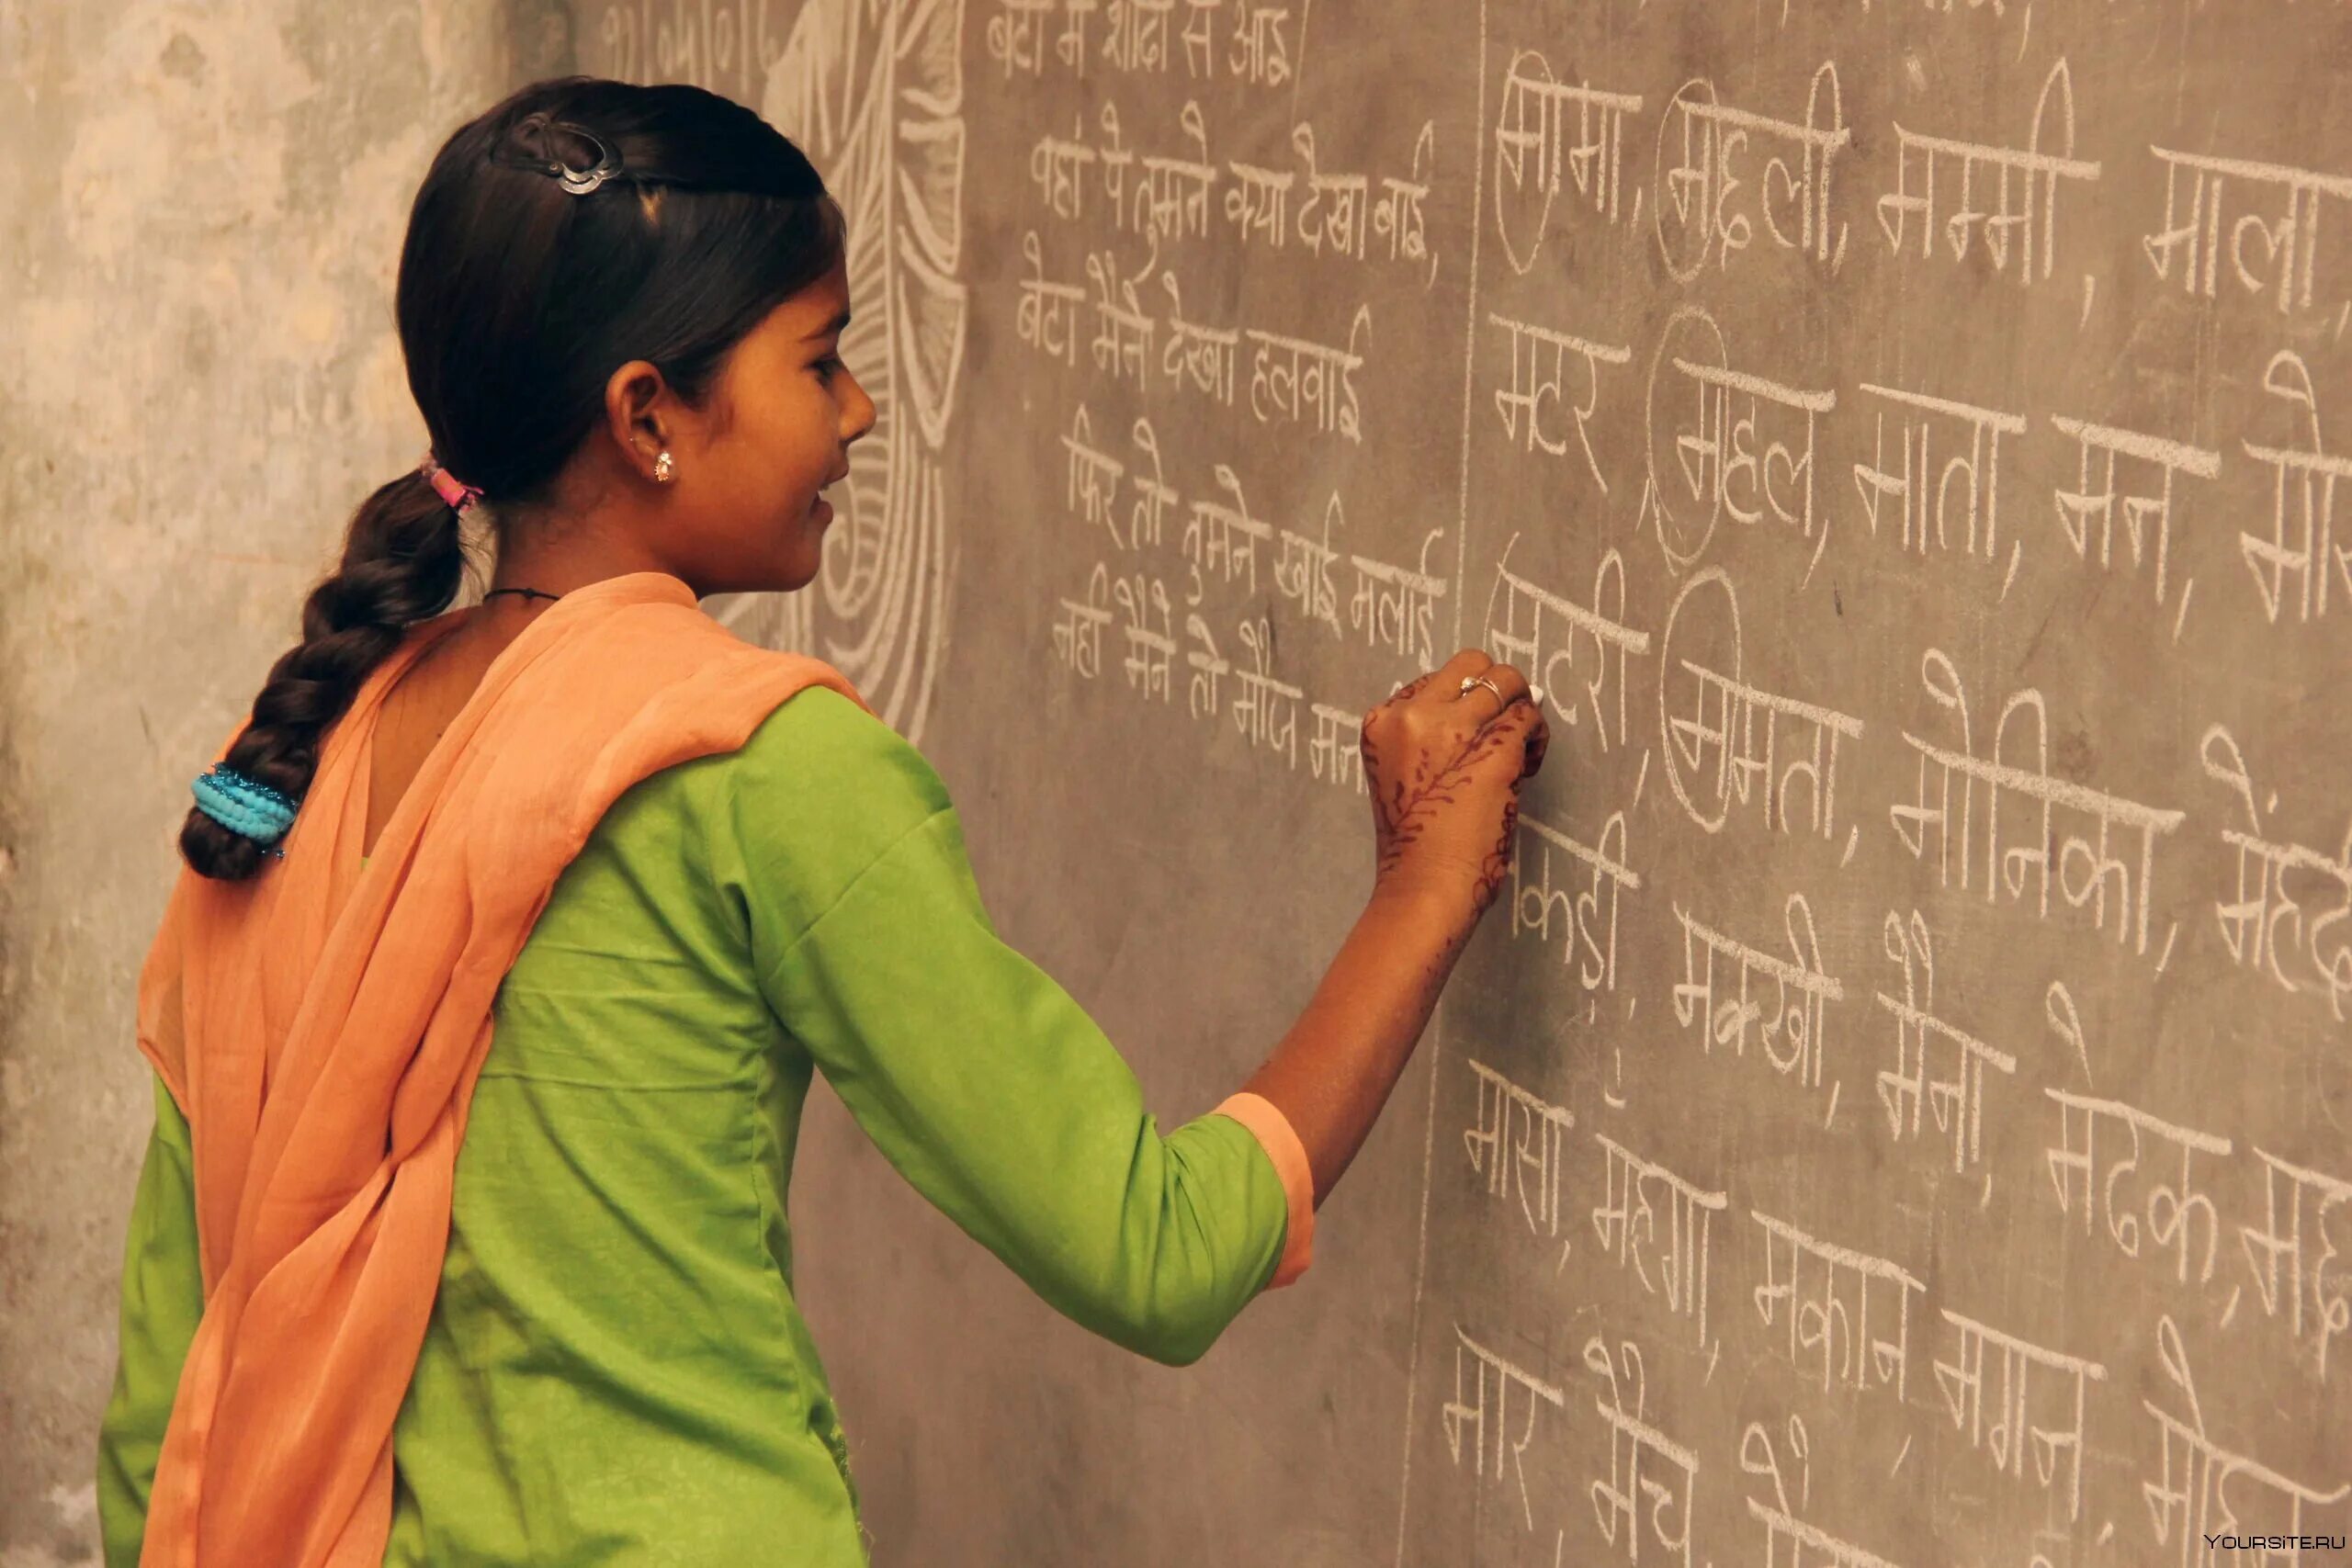 बेटा मैं शादी से आई
वहां पे तुमने क्या देखा बाई,
बेटा मैने देखा हलवाई
फिर तो तुमने खाई मलाई
नही मैने तो मौज मन
मामा, मछली, मम्मी, माला,
मटर, महल, माता, मन,
मटरी, ममता, मोनिका, मेंहद
कड़ी, मक्खी, मैना, मेढक,
मासा, महंगा, मकान, मगन,
मार, मैच
YOURSITE.RU